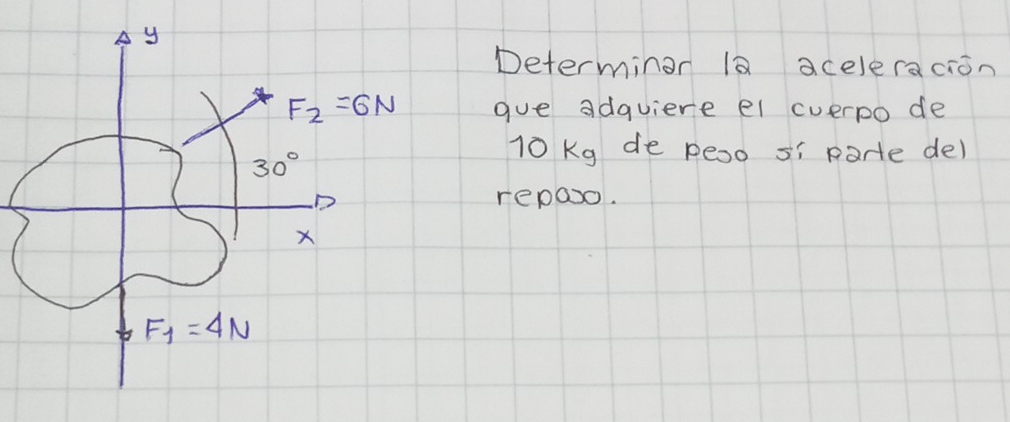 y
F₂ = 6N
30°
x
F₁ = 4N
Determinar la aceleración
que adquiere el cuerpo de
10 Kg de peso si parte del
reposo.